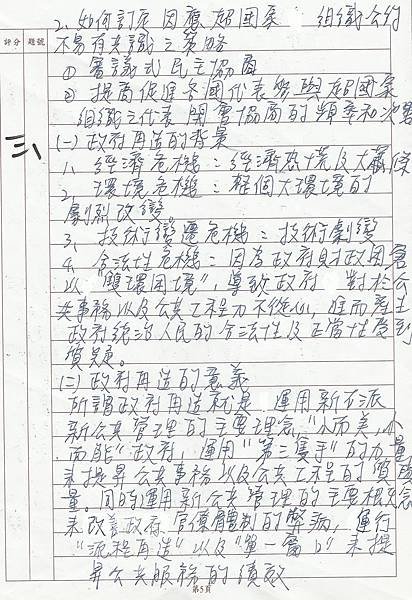 2. 如何訂定因應超國家 組織公約
不易有共識之策略
評分 題號
① 審議式民主協商
② 提高促進各國代表皆與超國家
組織之代表開會協商的頻率和次數
三、
(一)政府再造的背景
1. 經濟危機：經濟恐慌及大蕭條
2. 環境危機：整個大環境的
劇烈改變
3. 技術變遷危機：技術劇變
4. 合法性危機：因為政府財政困窘
以"雙環困境"，導致政府 對於公
共事務以及公共工程力不從心，進而產生
政府統治人民的合法性及正當性受到
質疑。
(二)政府再造的意義
所謂政府再造就是 運用新右派
新公共管理的主要理念"小而美，小
而能"政府，運用"第三隻手"的力量
來提昇公共事務以及公共工程的質與
量。同時運用新公共管理的主要概念
來改善政府官僚體制的弊病，運行
"流程再造"以及"單一窗口"來提
昇公共服務的績效
第5頁